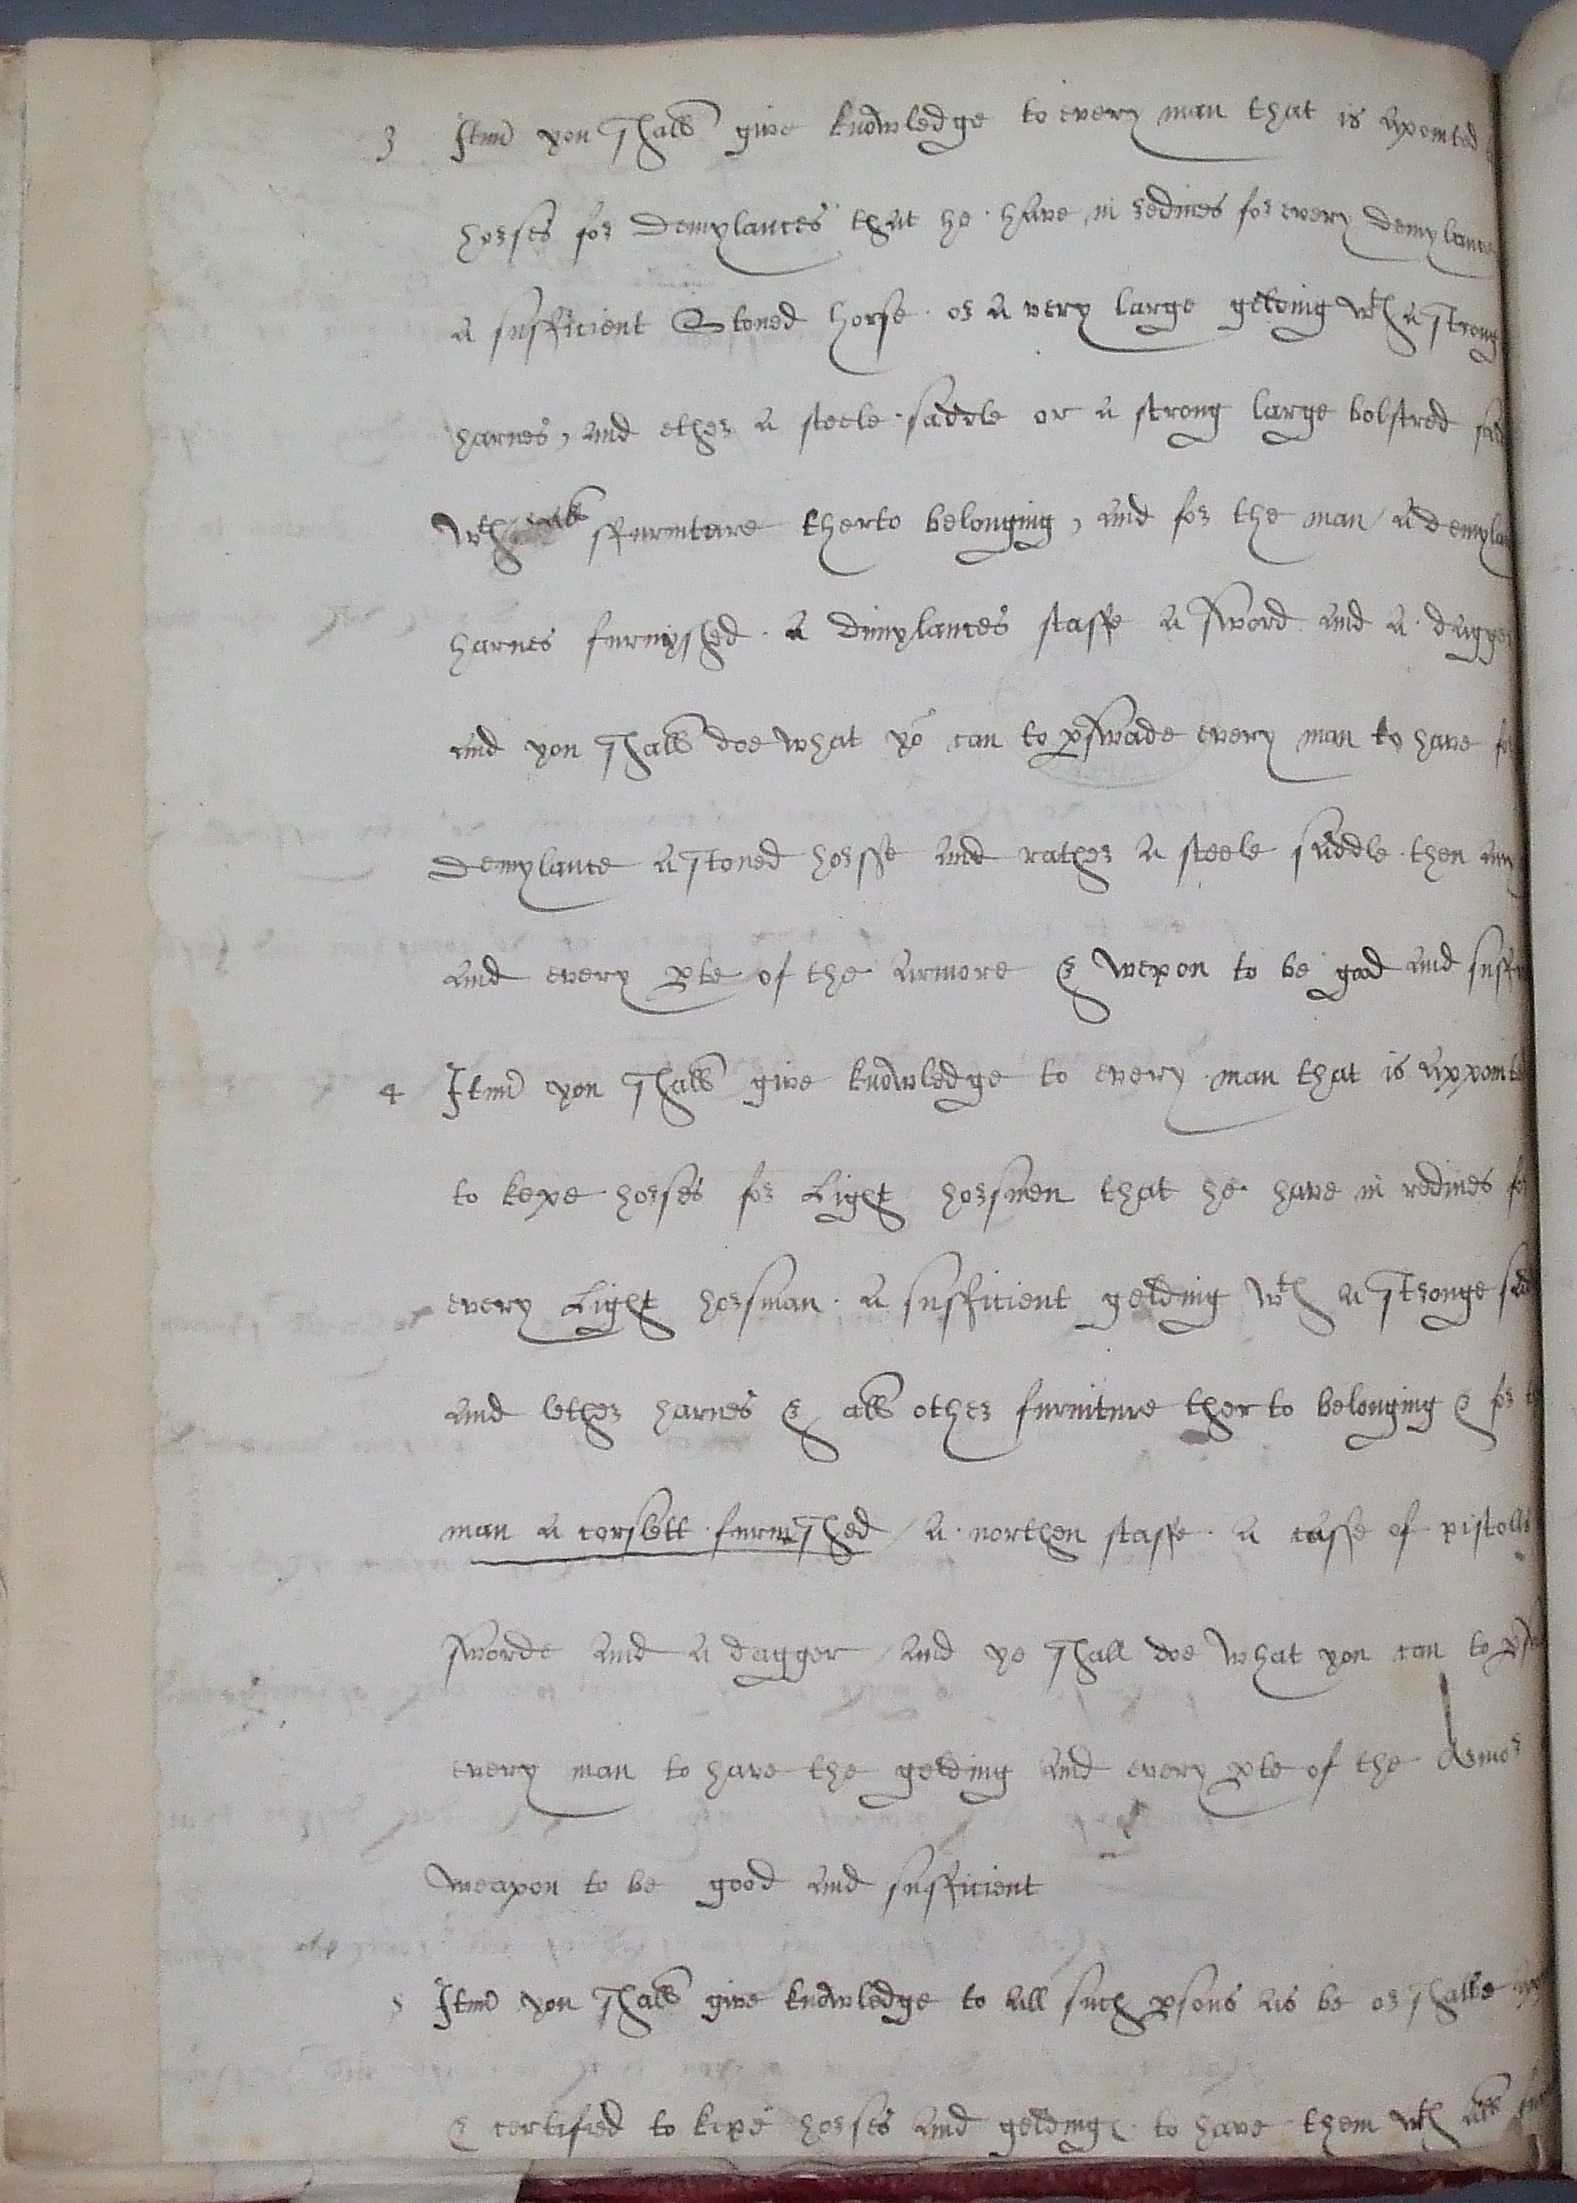 3 Itm you shall give knowledge to every man that is apointed
horses for demylances that he have in redines for every demylance
a sufficient stoned horse or a very large gelding wth a strong
harnes, and ether a steele saddle or a strong large bolstred
wth all ffurniture therto belonging, and for the man a
harnes furnyshed a dimylances staffe a sword and a dagger
and you shall doe what yo can to pswade every man to have
demylance a stoned horsse and rather a steele saddle then any
and every pte of the armore & wepon to be good and
4 Itm you shall give knowledge to every man that is
to kepe horses for Light horsmen that he have in redines for
every Light horsman a sufficient gelding wth a stronge
and lether harnes & all other furniture therto belonging & for
man a corslett furnished / a northen staffe a casse of pistolls
sworde and a dagger / and ye shall doe what you can to
every man to have the gelding and every pte of the Armor
weapon to be good and sufficient
5 Itm you shall give knowledge to all such psons as be or shalbe
& certified to kepe horses and gelding to have them wth all